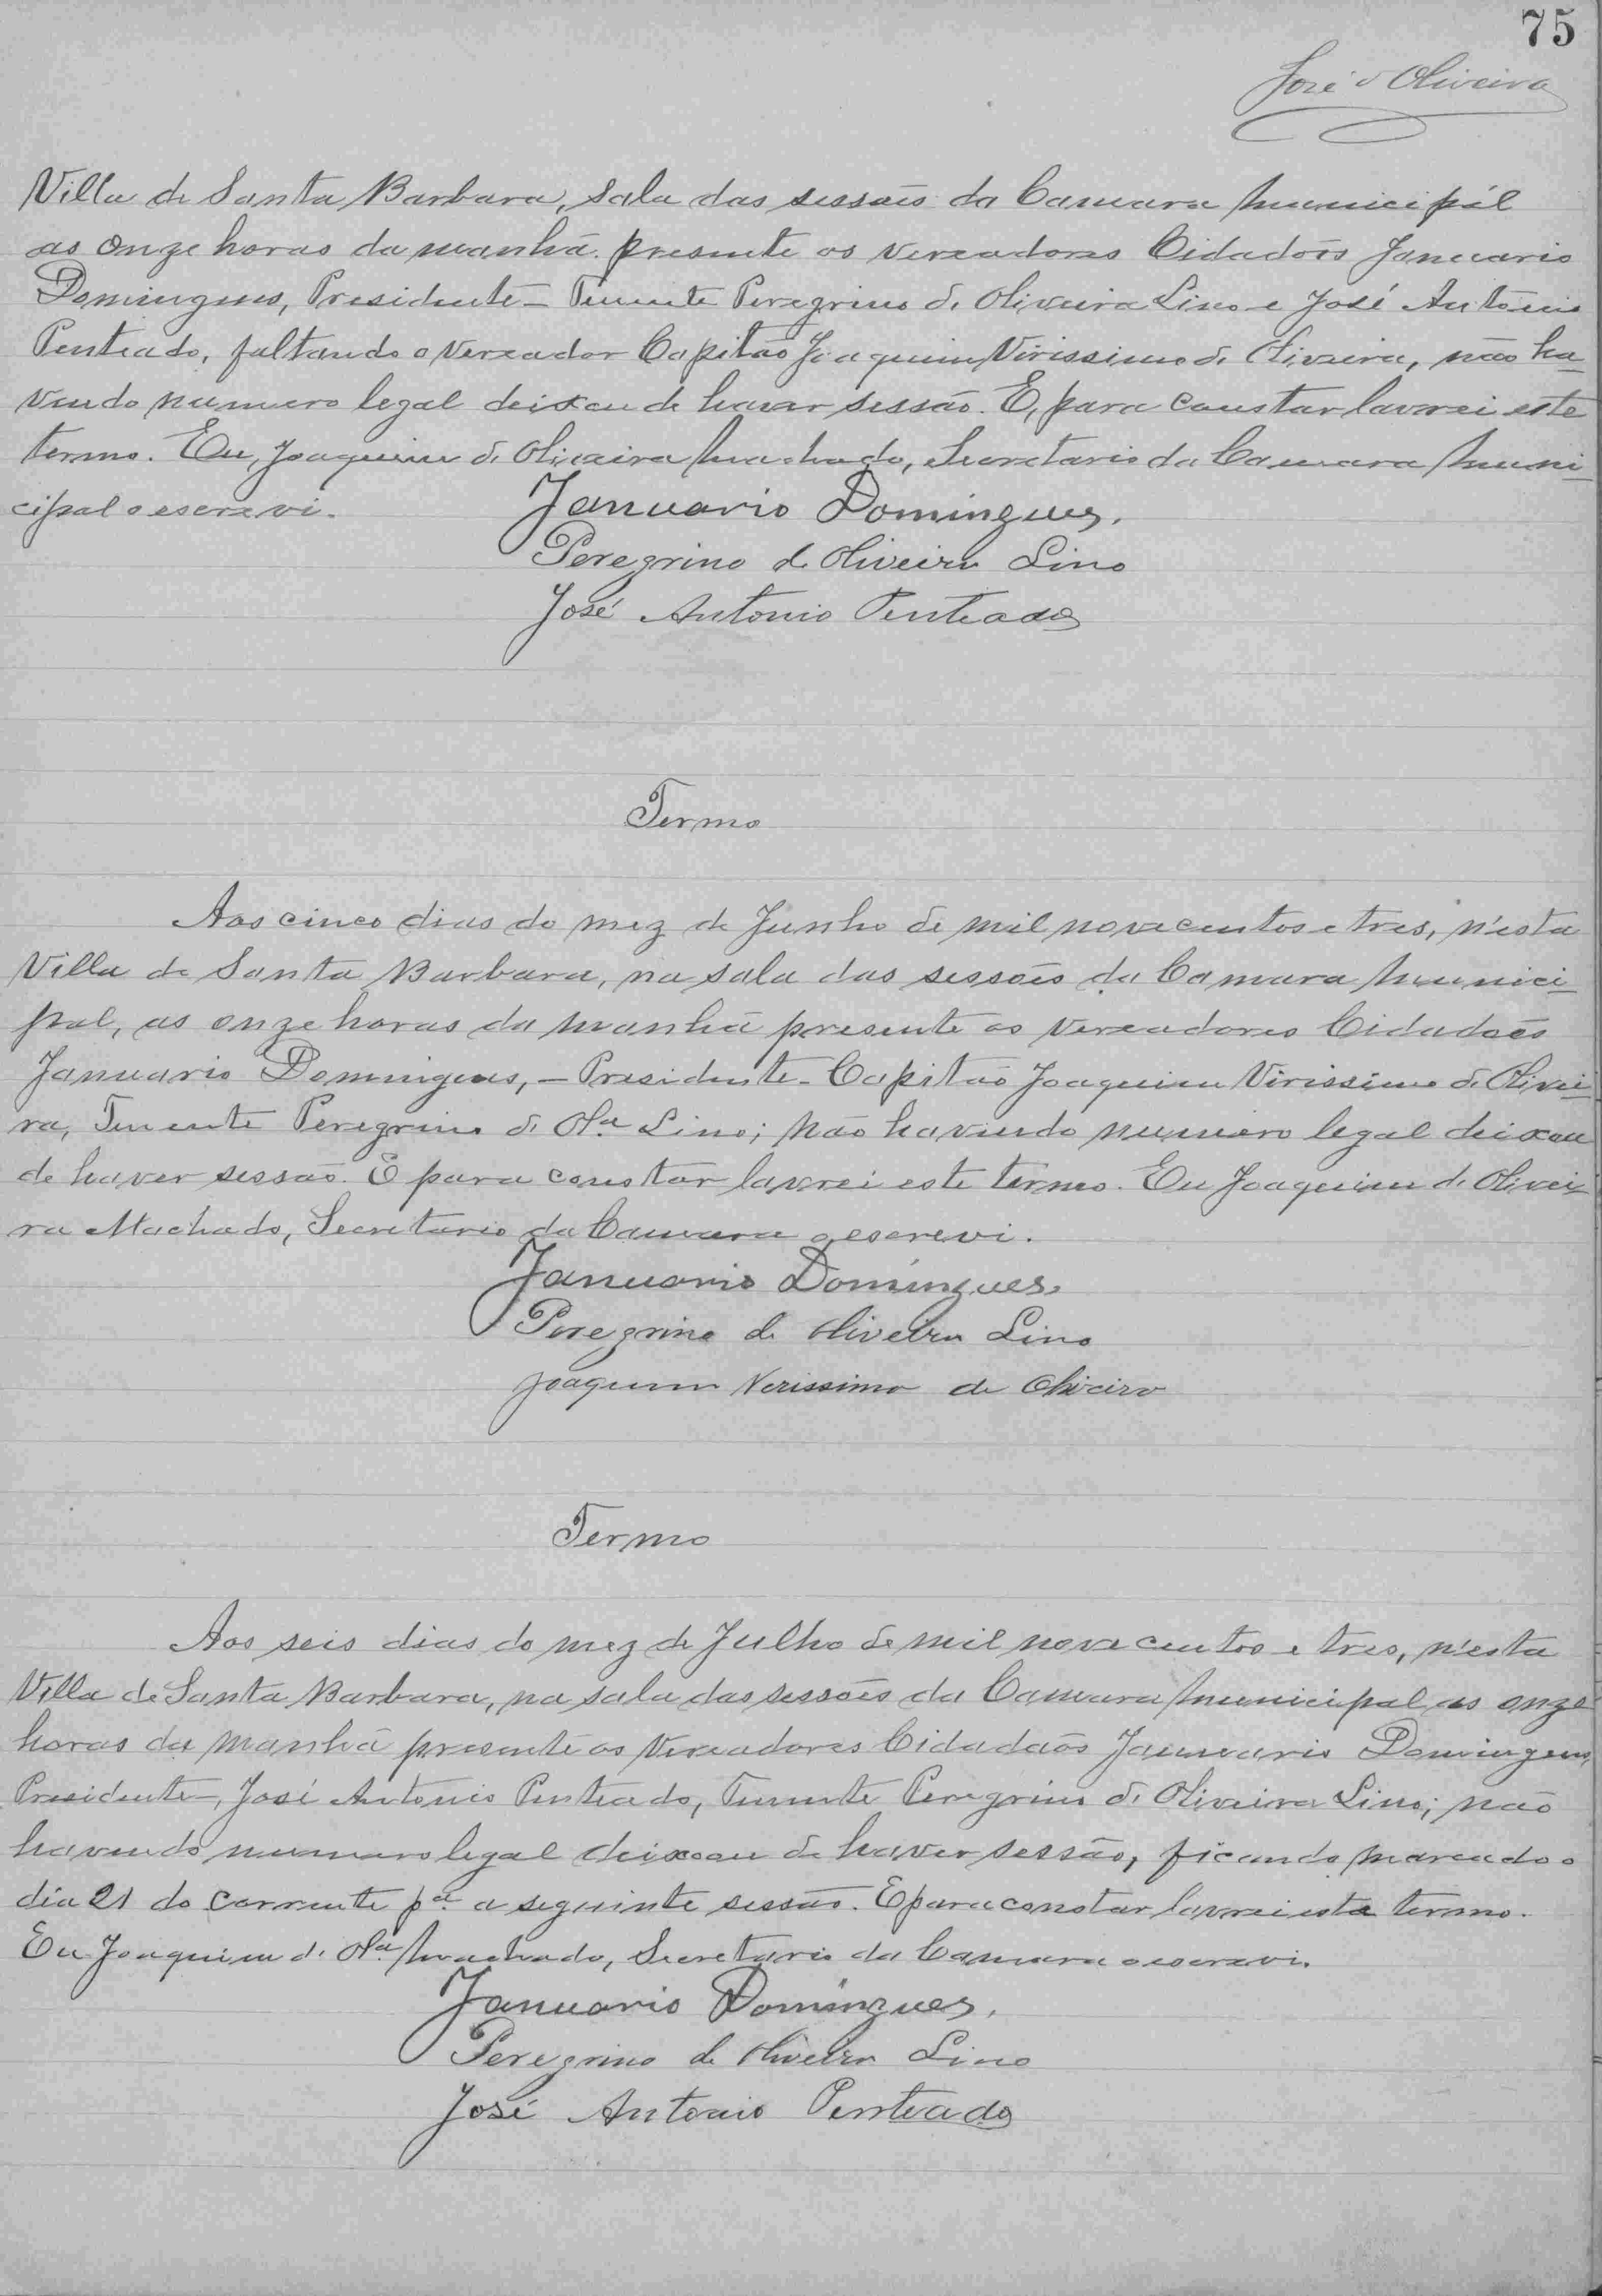 75
José d'Oliveira
Villa de Santa Barbara, sala das sessões da Camara Municipál
as onze horas da manhã. presente os vereadores Cidadões Januario
Domingues, Presidente – Tenente Peregrino de Oliveira Lino e José Antonio
Penteado, faltando o vereador Capitão Joaquim Virissimo de Oliveira, não ha-
vendo numero legal deixou de haver sessão. E, para constar lavrei este
termo. Eu, Joaquim de Oliveira Machado, Secretario da Camara Muni-
cipal o escrevi.
Januario Domingues.
Peregrino de Oliveira Lino
José Antonio Penteado
Termo
Aos cinco dias do mez de Junho de mil novecentos e tres, n'esta
Villa de Santa Barbara, na sala das sessões da Camara Munici-
pal, as onze horas da manhã presente os vereadores Cidadões
Januario Domingues, – Presidente – Capitão Joaquim Virissimo de Olivei-
ra, Tenente Peregrino de Olª Lino; não havendo numero legal deixou
de haver sessão. E para constar lavrei este termo. Eu Joaquim de Olivei-
ra Machado, Secretario da Camara o escrevi.
Januario Domingues.
Peregrino de Oliveira Lino
Joaquim Verissimo de Oliveira
Termo
Aos seis dias do mez de Julho de mil novecentos e tres, n'esta
Villa de Santa Barbara, na sala das sessões da Camara Municipal as onze
horas da manhã presente os Vereadores Cidadãos Januario Domingues,
Presidente –, José Antonio Penteado, Tenente Peregrino de Oliveira Lino; não
havendo numero legal deixou de haver sessão, ficando marcado o
dia 21 do corrente pª a seguinte sessão. E para constar lavrei este termo.
Eu Joaquim de Olª Machado, Secretario da Camara o escrevi.
Januario Domingues.
Peregrino de Oliveira Lino
José Antonio Penteado